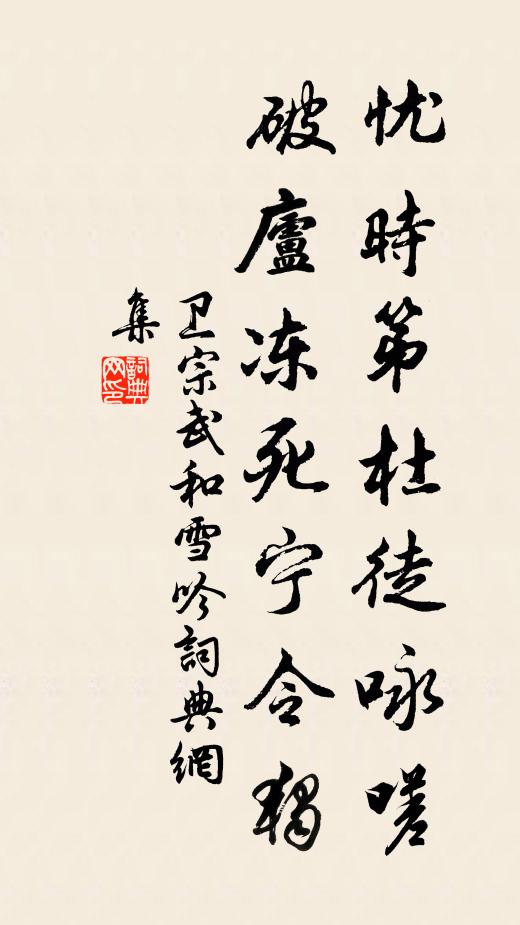 忧時第杜徒咏嗟
破廬冻死宁令独
卫宗武和雪吟詞典網
集
詞典網印